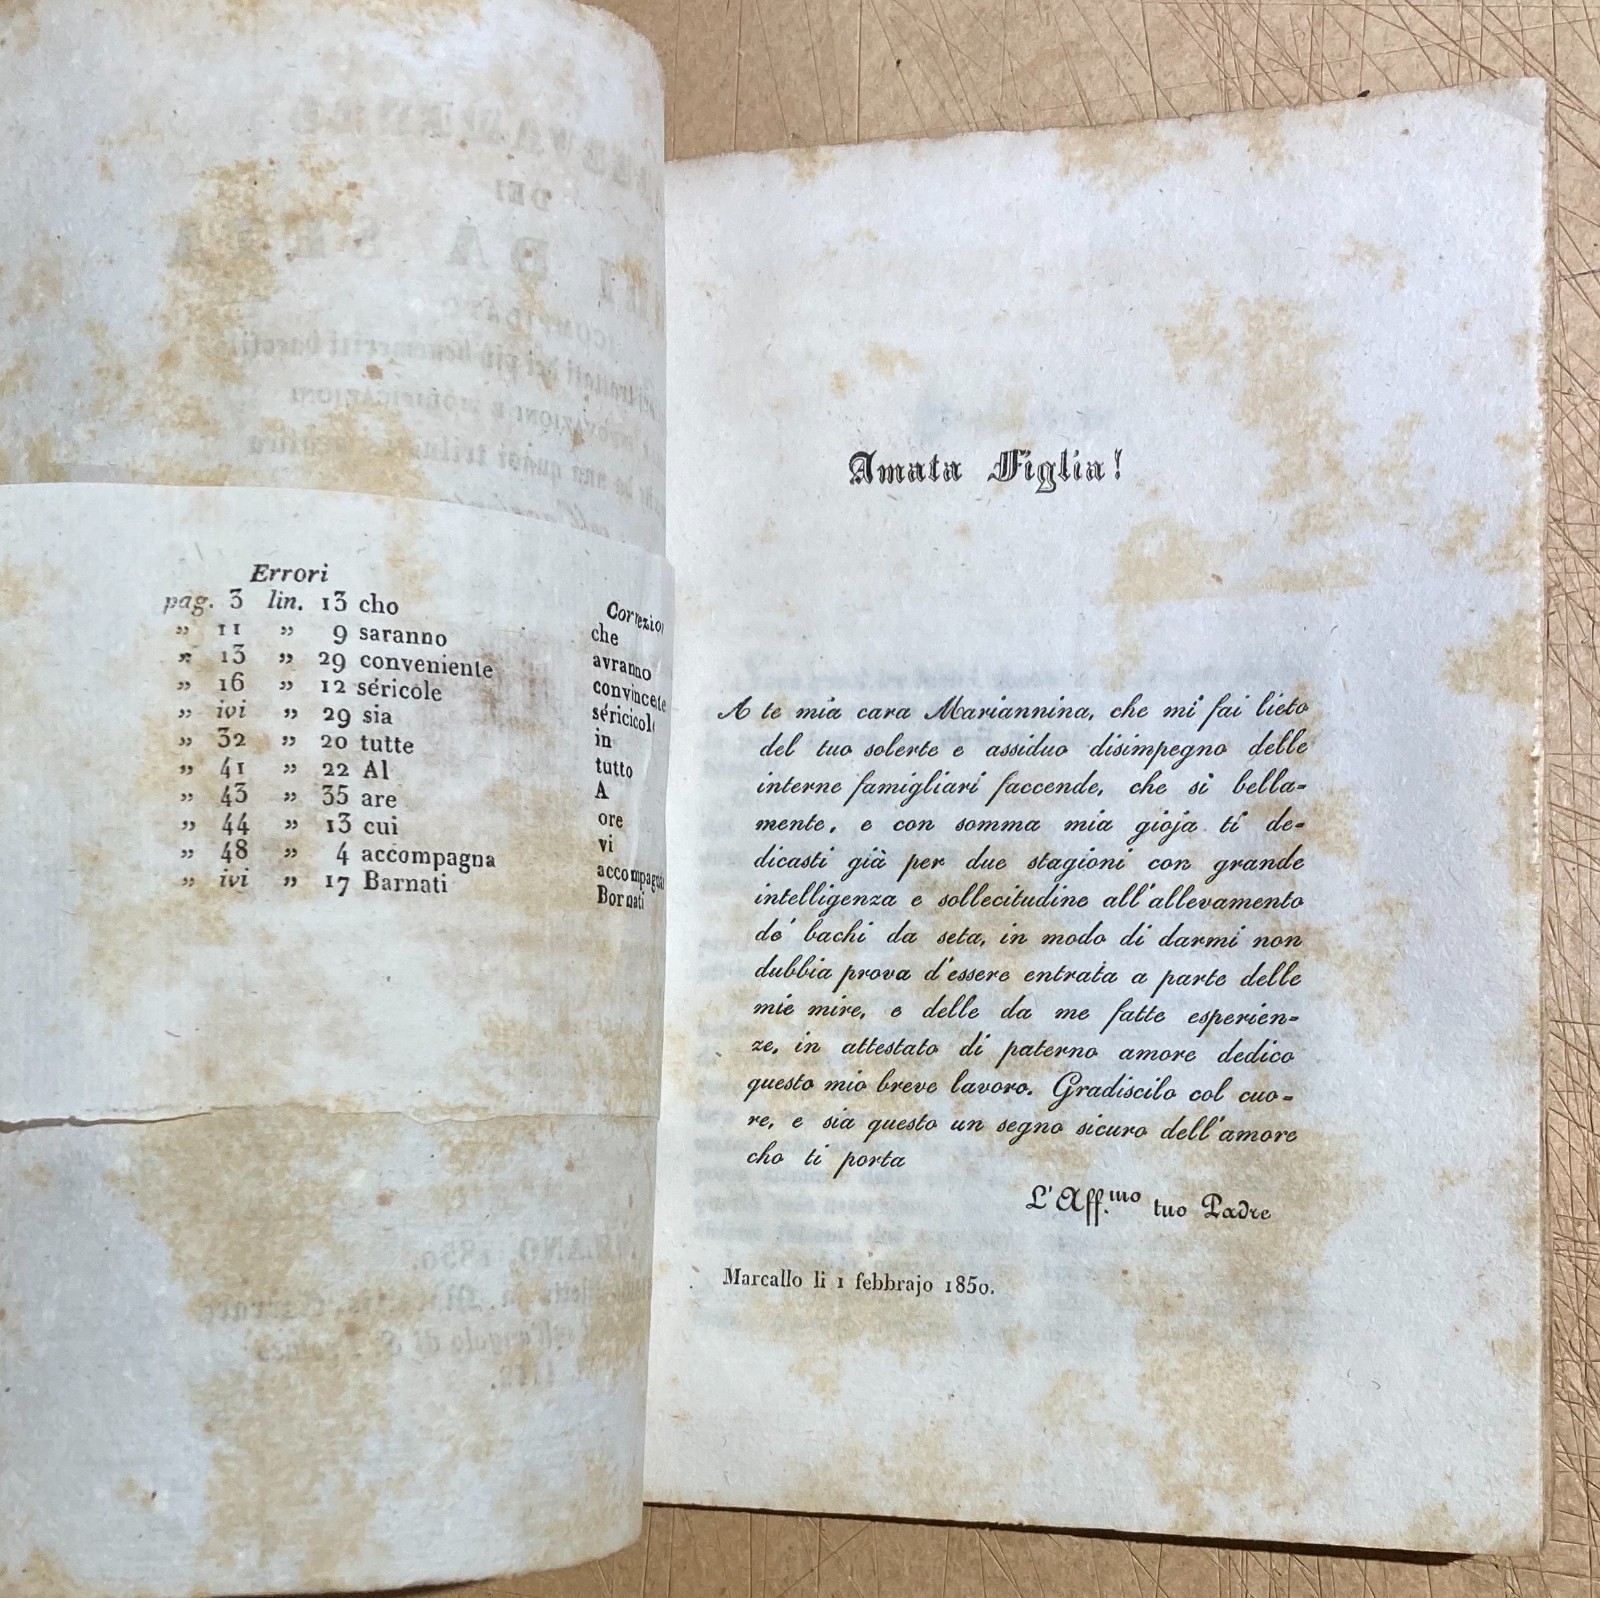 Errori
Correzio
pag. 3 lin. 13 cho che
” 11 ” 9 saranno avranno
” 13 ” 29 conveniente convincete
” 16 ” 12 séricole séricicole
” ivi ” 29 sia in
” 32 ” 20 tutte tutto
” 41 ” 22 Al A
” 43 ” 35 are ore
” 44 ” 13 cui vi
” 48 ” 4 accompagna accompagna
” ivi ” 17 Barnati Bornati
Amata Figlia!
A te mia cara Mariannina, che mi fai lieto
del tuo solerte e assiduo disimpegno delle
interne famigliari faccende, che si bella-
mente, e con somma mia gioja ti de-
dicasti già per due stagioni con grande
intelligenza e sollecitudine all'allevamento
de' bachi da seta, in modo di darmi non
dubbia prova d'essere entrata a parte delle
mie mire, e delle da me fatte esperien-
ze, in attestato di paterno amore dedico
questo mio breve lavoro. Gradiscilo col cuo-
re, e sia questo un segno sicuro dell'amore
cho ti porta
L'Aff.mo tuo Padre
Marcallo li 1 febbrajo 1850.